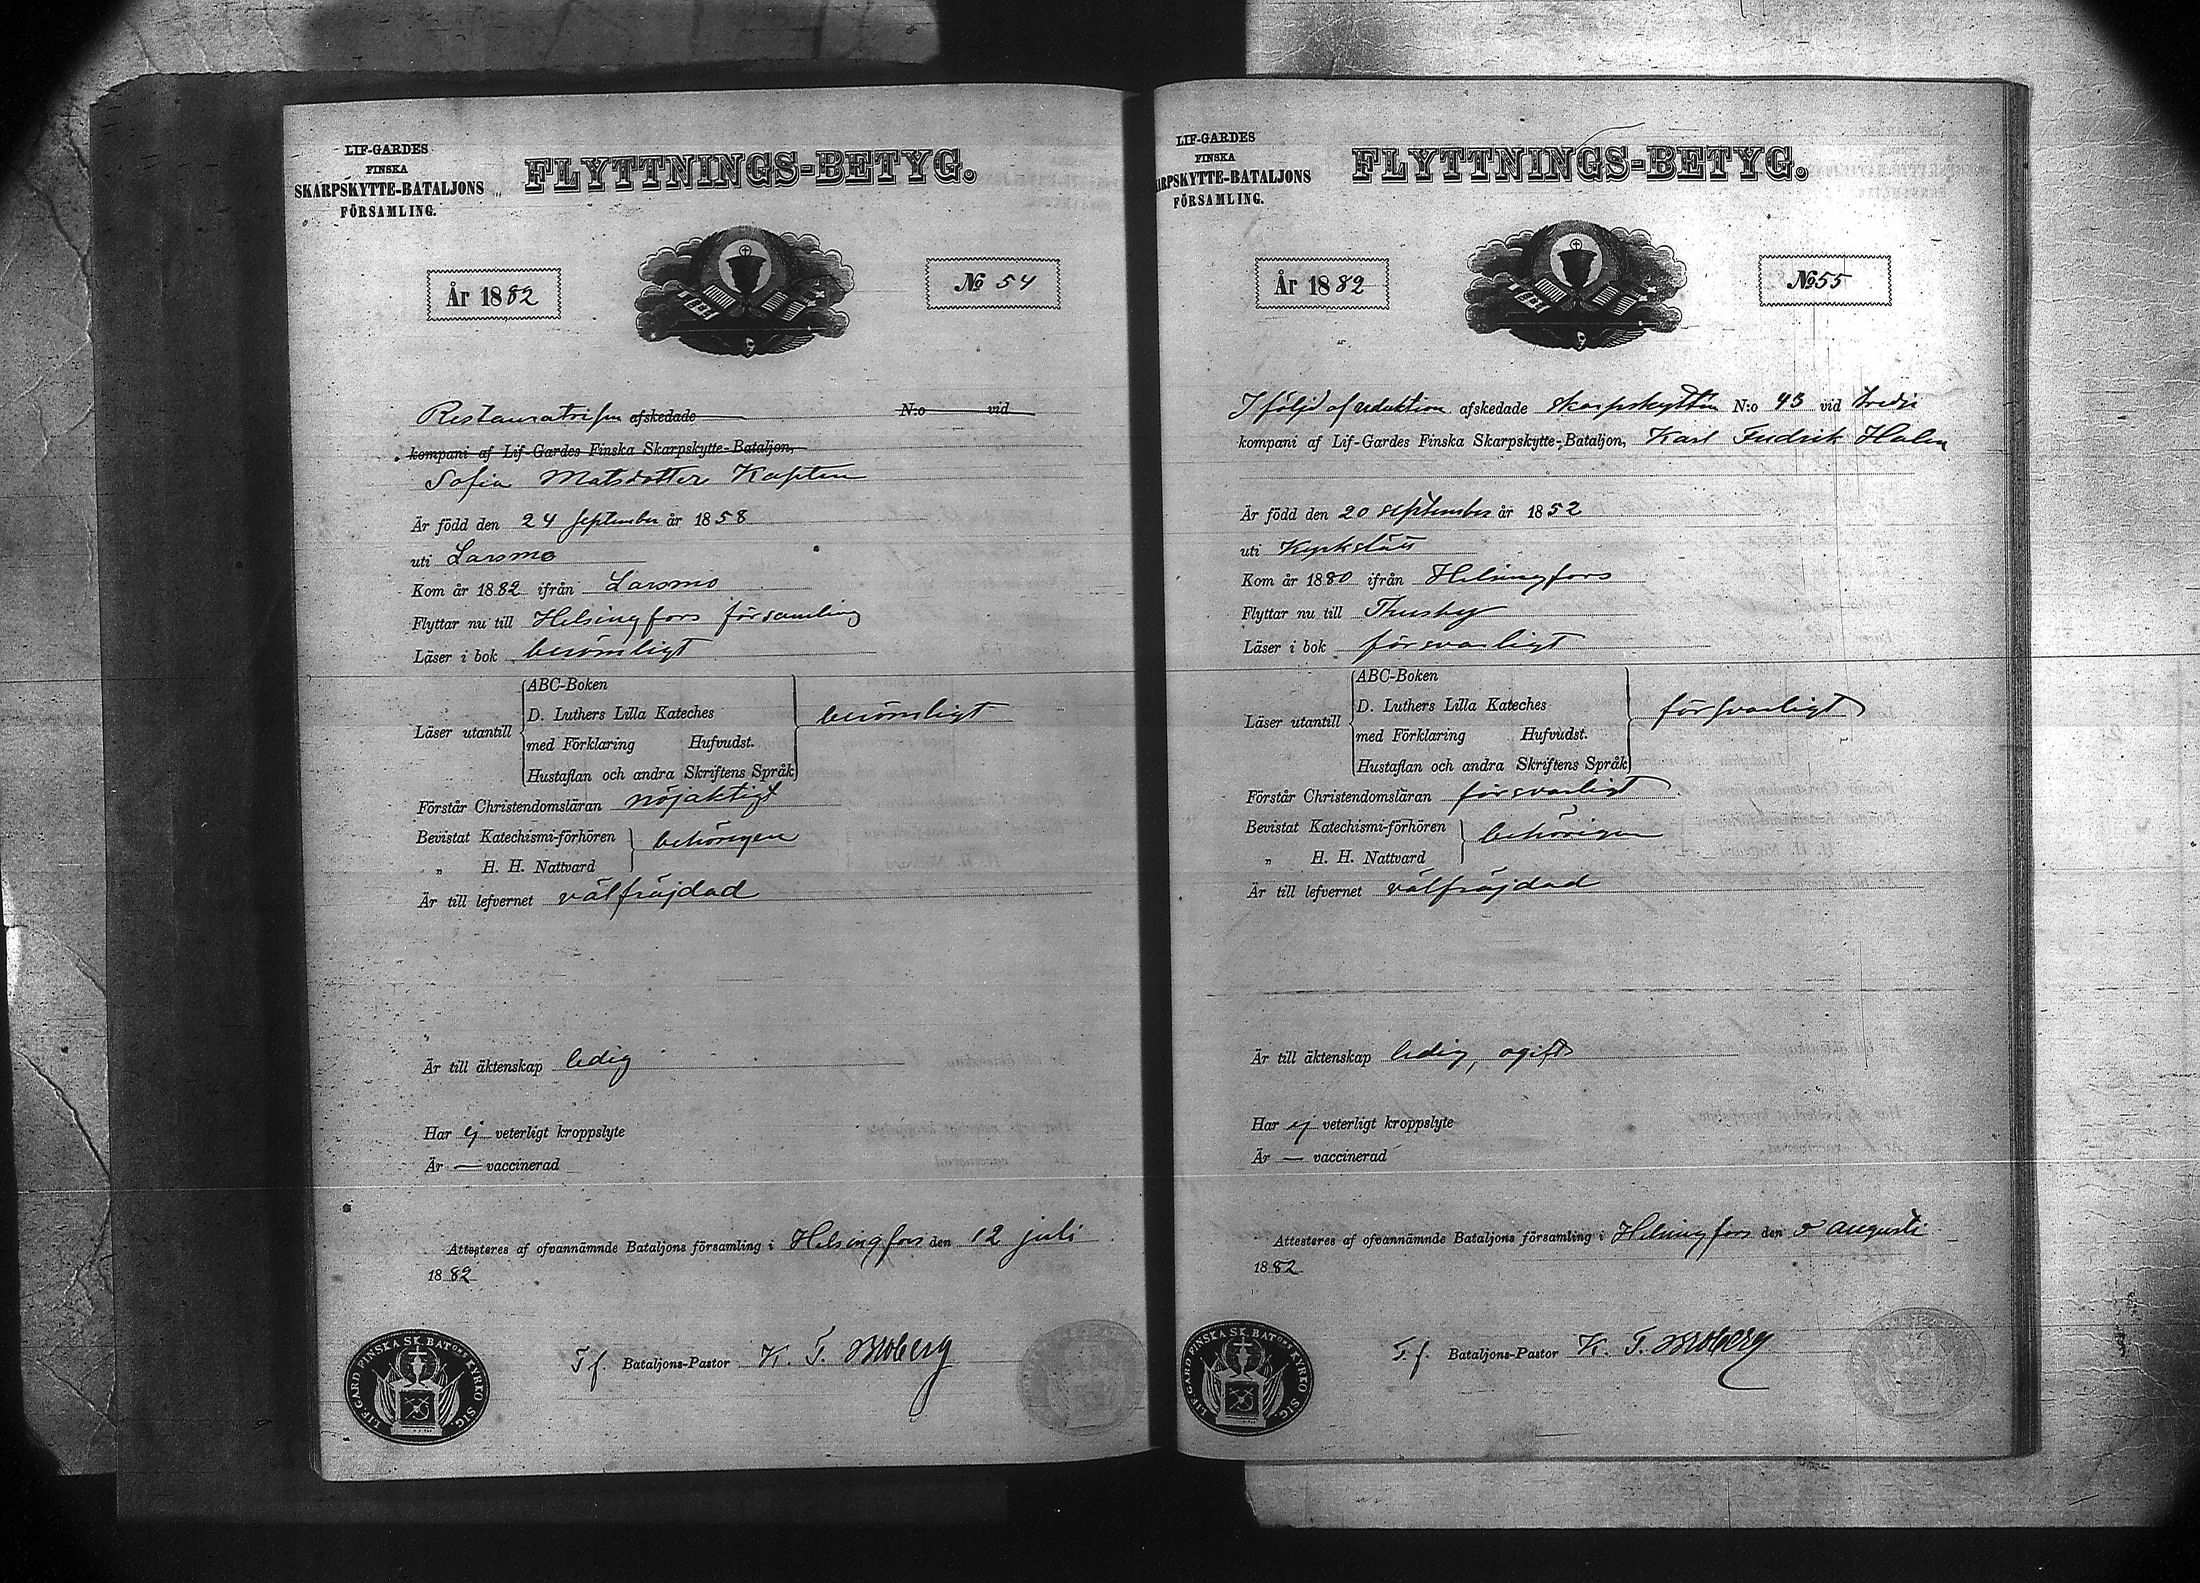 LIF-GARDES
FINSKA
SKARPSKYTTE-BATALJONS
FÖRSAMLING.
FLYTTNINGS-BETYG.
År 1882
No 54
Restauratrisen afskedade N:o vid
kompani af Lif-Gardes Finska Skarpskytte-Bataljon,
Sofia Matsdotter Kapten
Är född den 24 September år 1858
uti Larsmo
Kom år 1882 ifrån Larsmo
Flyttar nu till Helsingfors församling
Läser i bok berömligt
Läser utantill
ABC-Boken
D. Luthers Lilla Kateches
med Förklaring Hufvudst.
Hustaflan och andra Skriftens Språk
berömligt
Förstår Christendomsläran nöjaktigt
Bevistat Katechismi-förhören
„ H. H. Nattvard
behörigen
Är till lefvernet välfräjdad
Är till äktenskap ledig
Har ej veterligt kroppslyte
Är — vaccinerad
Attesteres af ofvannämnde Bataljons församling i Helsingfors den 12 juli
1882
T. f. Bataljons-Pastor K. T. Broberg
LIF. GARD FINSKA SK. BATONS KYRKO SIG.
LIF-GARDES
FINSKA
RPSKYTTE-BATALJONS
FÖRSAMLING.
FLYTTNINGS-BETYG.
År 1882
No 55
I följd af reduktion afskedade Skarpskytten N:o 43 vid tredje
kompani af Lif-Gardes Finska Skarpskytte-Bataljon, Karl Fredrik Holm
Är född den 20 September år 1852
uti Kyrkslätt
Kom år 1880 ifrån Helsingfors
Flyttar nu till Thusby
Läser i bok försvarligt
Läser utantill
ABC-Boken
D. Luthers Lilla Kateches
med Förklaring Hufvudst.
Hustaflan och andra Skriftens Språk
försvarligt
Förstår Christendomsläran försvarligt
Bevistat Katechismi-förhören
„ H. H. Nattvard
behörigen
Är till lefvernet välfräjdad
Är till äktenskap ledig, ogift
Har ej veterligt kroppslyte
Är — vaccinerad
Attesteres af ofvannämnde Bataljons församling i Helsingfors den augusti
1882
T. f. Bataljons-Pastor K. T. Broberg
LIF. GARD FINSKA SK. BATONS KYRKO SIG.